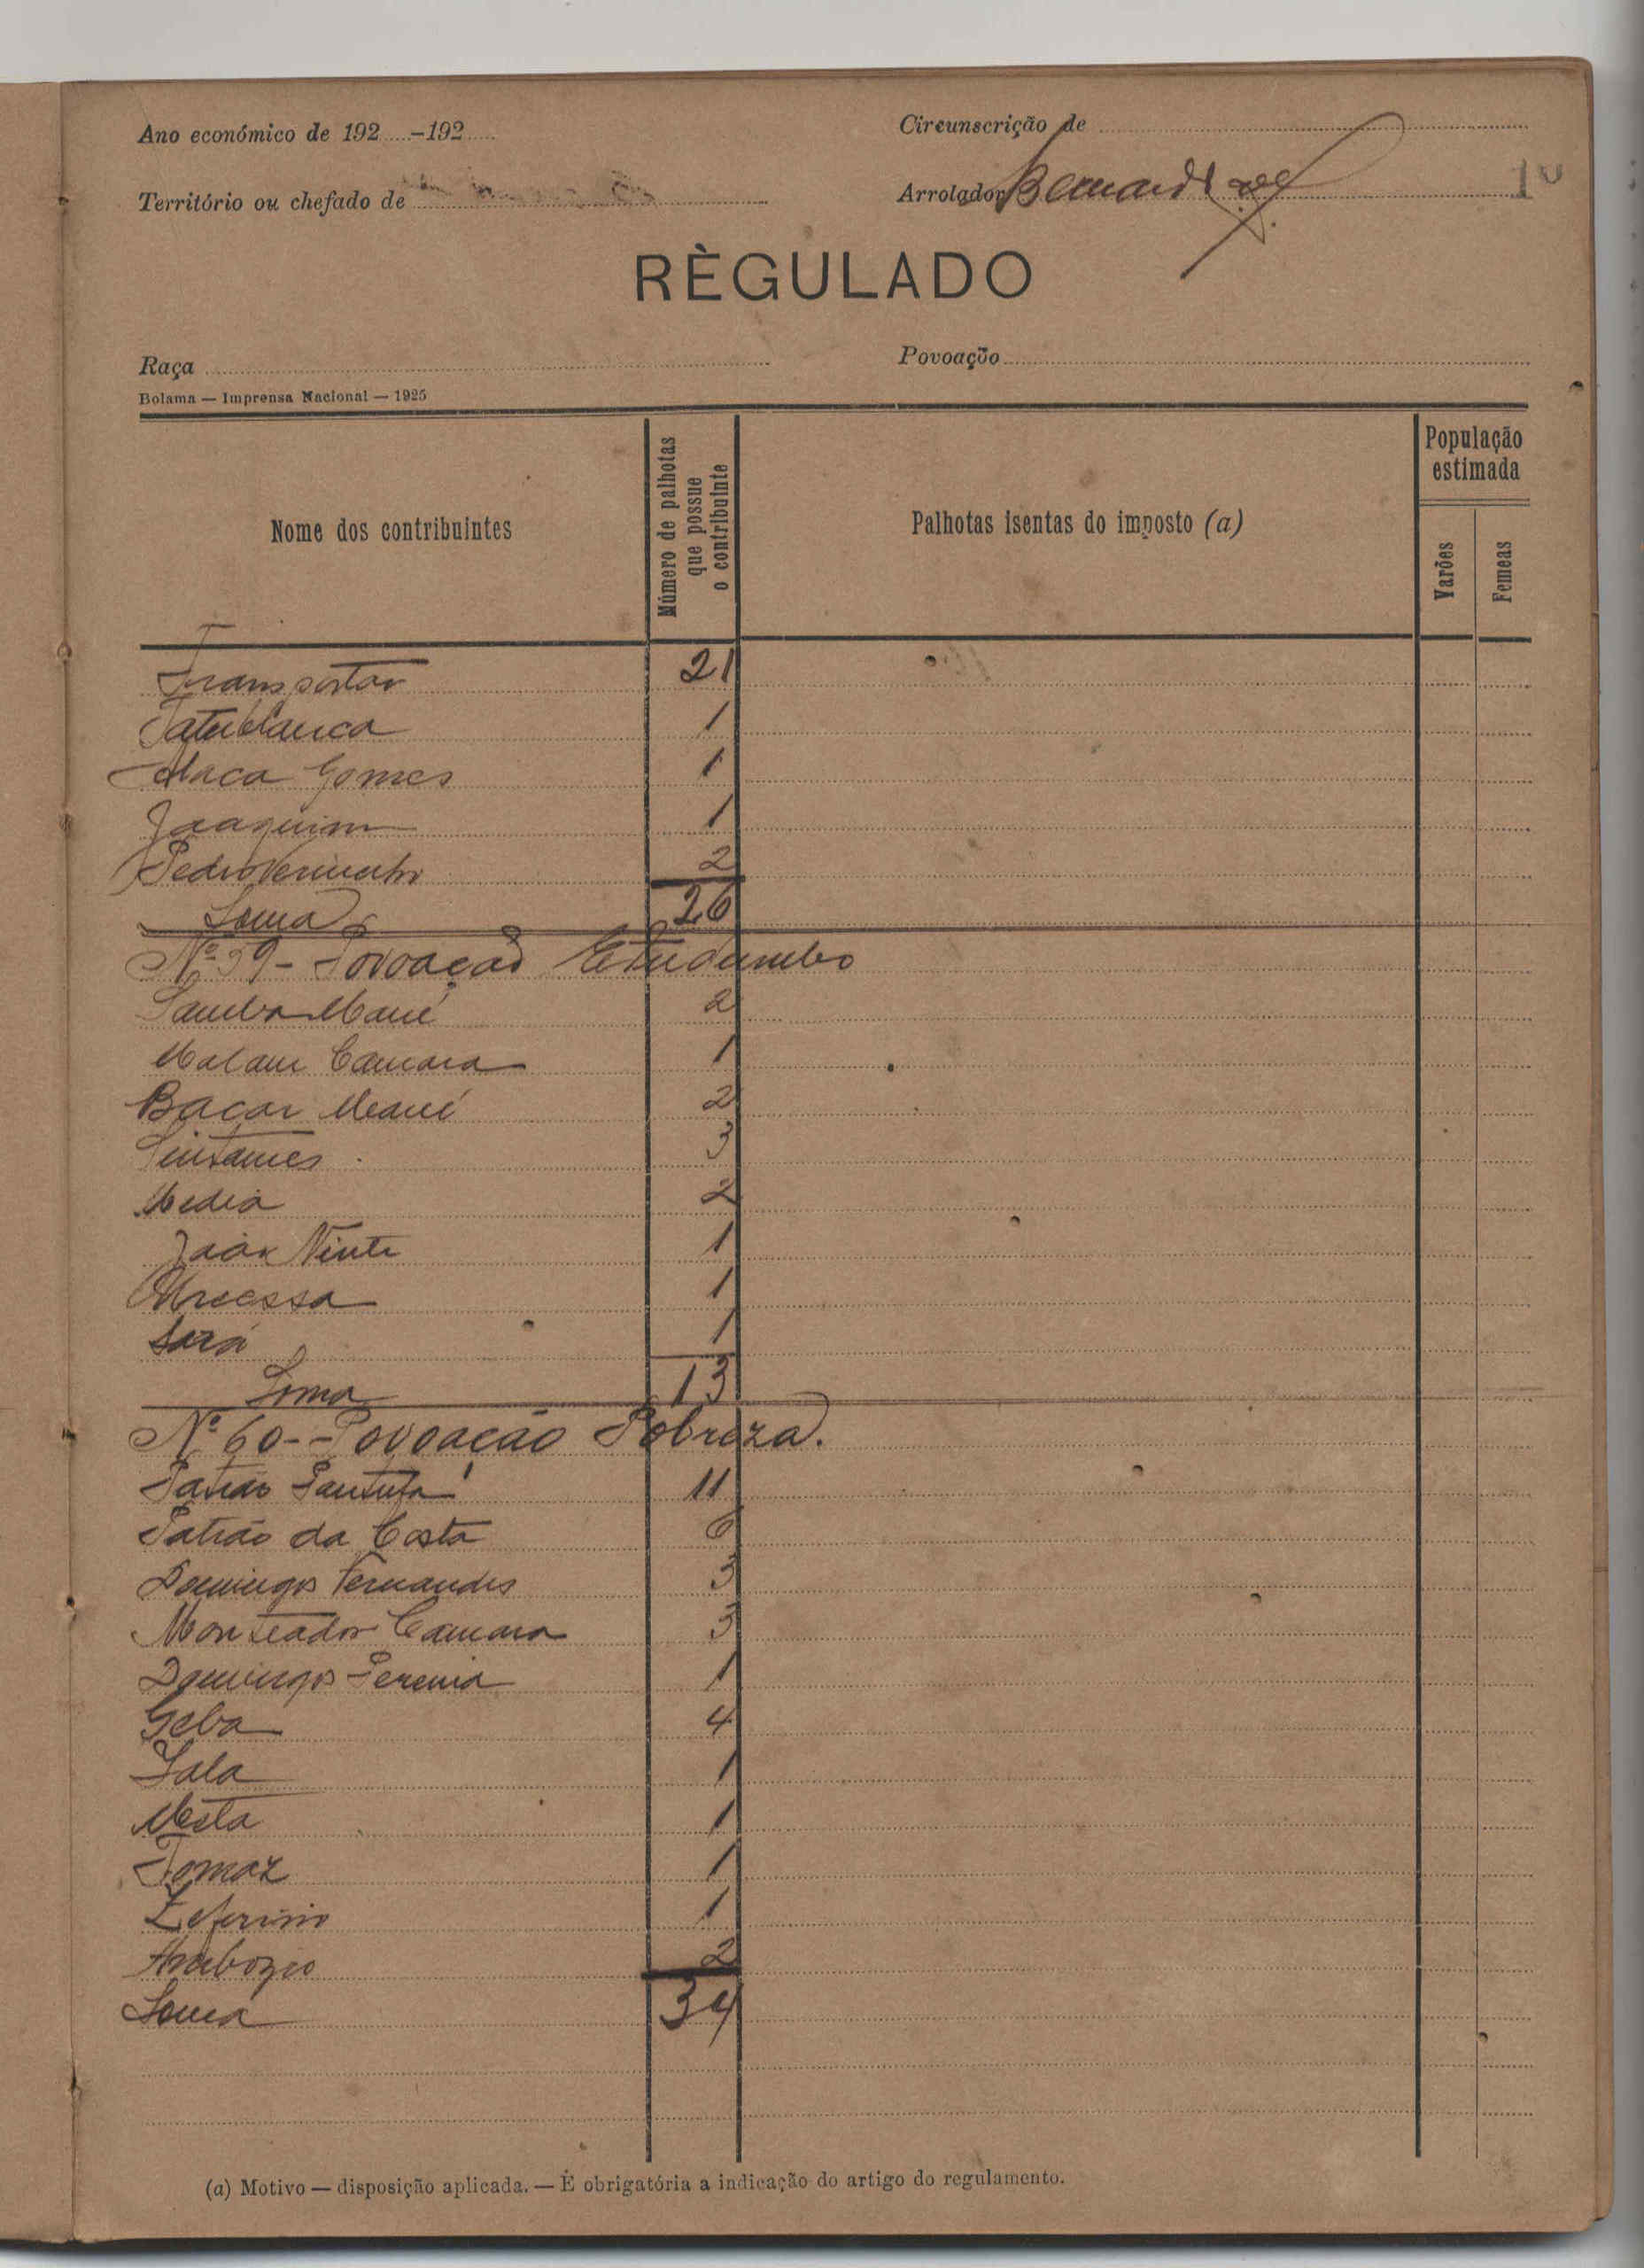 Ano económico de 192.....-192.....
Circunscrição de
Território ou chefado de
Arrolador
RÈGULADO
Raça
Povoação
Bolama — Imprensa Nacional — 1925
Nome dos contribuintes
Número de palhotas que possue o contribuinte
Palhotas isentas do imposto (a)
População estimada
Varões
Femeas
Transportar 21
1
Gomes 1
Joaquim 1
Pedro 2
Soma 26
Nº 59 - Povoação
Samba Mané 2
Malam Camara 1
Bacar Mané 2
3
Media 2
1
1
Sará 1
Soma 13
Nº 60 - Povoação Pobreza.
11
Patrão da Costa 6
Domingos Fernandes 3
Camara 3
Domingos Pereira 1
Geba 4
1
1
Tomaz 1
Zeferino 1
Ambozio 2
Soma 34
(a) Motivo — disposição aplicada. — É obrigatória a indicação do artigo do regulamento.